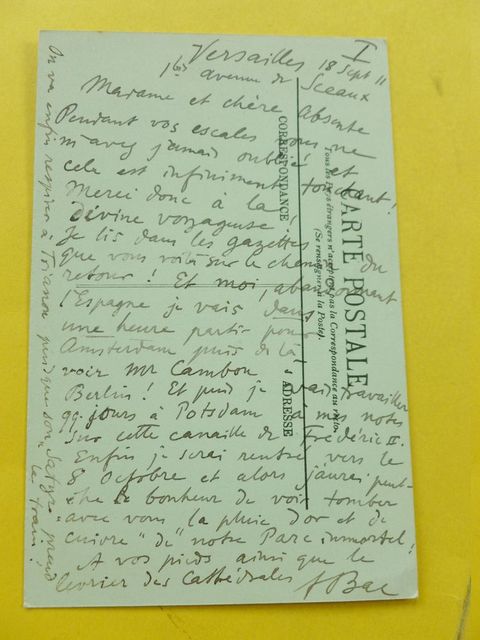 I
Versailles 18 Sept 11
16 bis avenue de Sceaux
Madame et chère Absente
Pendant vos escales vous ne
m'avez jamais oublié et
cela est infiniment touchant!
Merci donc à la
divine voyageuse!
Je lis dans les gazettes
que vous voilà sur le chemin du
retour! Et moi, abandonnant
l'Espagne je vais dans
une heure partir pour
Amsterdam puis de là
voir Mr Cambon à
Berlin! Et puis je vais travailler
qq. jours à Potsdam à mes notes
sur cette canaille de Frédéric II.
Enfin je serai rentré vers le
8 Octobre et alors j'aurai peut-
être le bonheur de voir tomber
avec vous la pluie d'or et de
cuivre "de" notre Parc immortel!
A vos pieds ainsi que le
levrier des Cathédrales
F Bac
On va enfin respirer à Trianon puisque son "Satyre" prend
le train!
CARTE POSTALE
Tous les pays étrangers n'acceptent pas la Correspondance au recto.
(Se renseigner à la Poste).
CORRESPONDANCE
ADRESSE